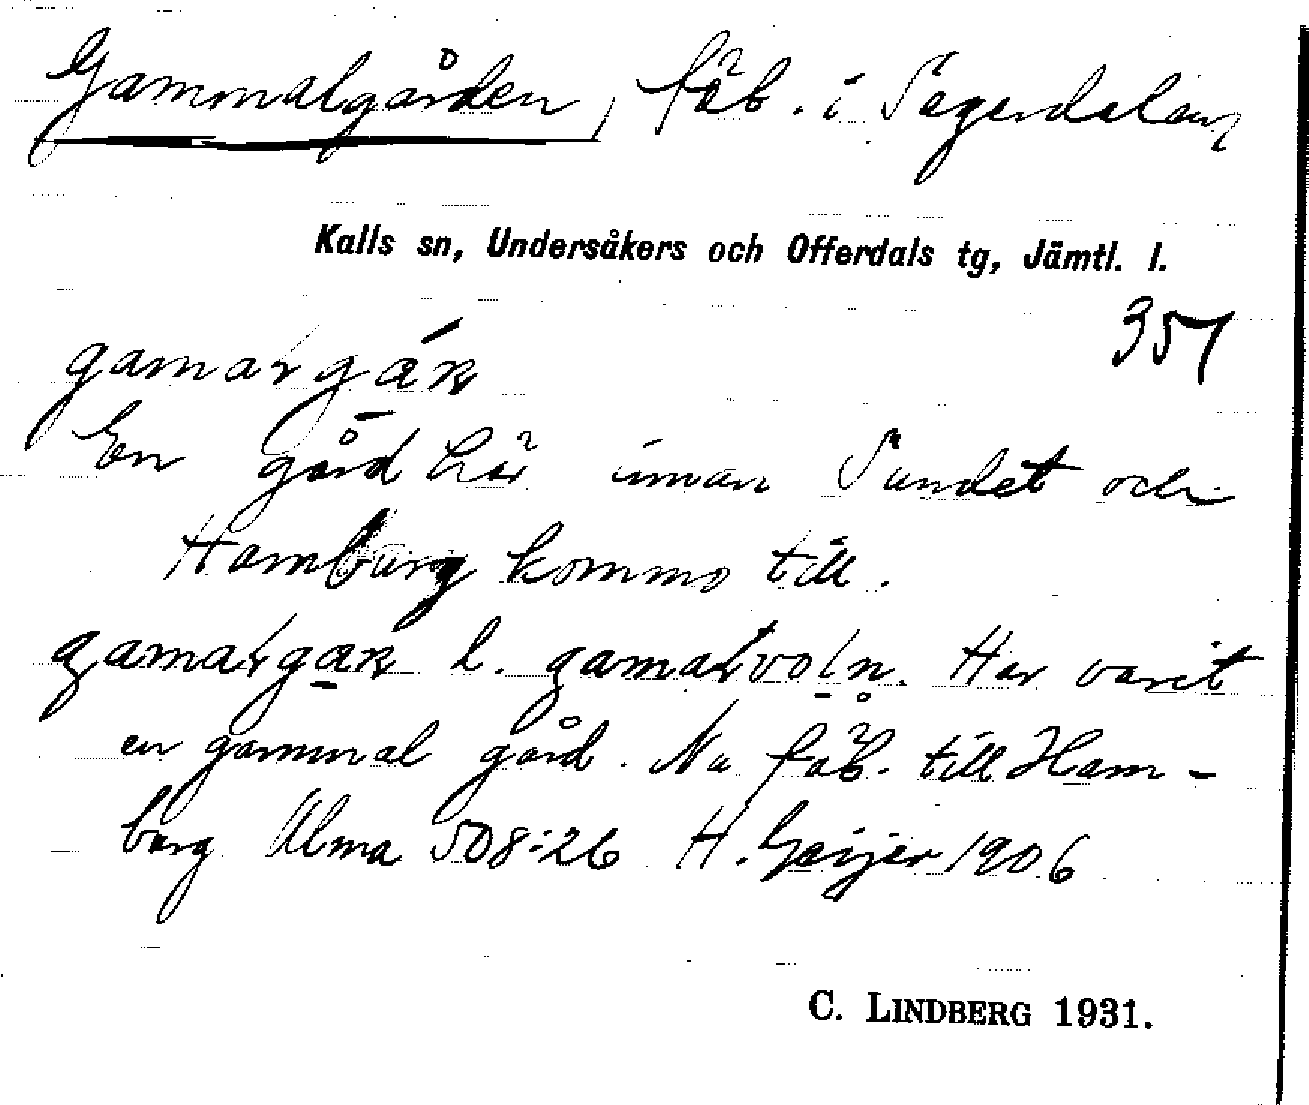 Gammalgården, fäb. i Sagerdalen
Kalls sn, Undersåkers och Offerdals tg, Jämtl. l.
357
gamaɽgáɳ
En gård här innan Sundet och
Hamburg kommo till.
gamaɽgaɳ l. gamaɽvoḷn̥. Har varit
en gammal gård. Nu fäb. till Ham-
burg Alma 508:26 H. Geijer 1906
C. LINDBERG 1931.